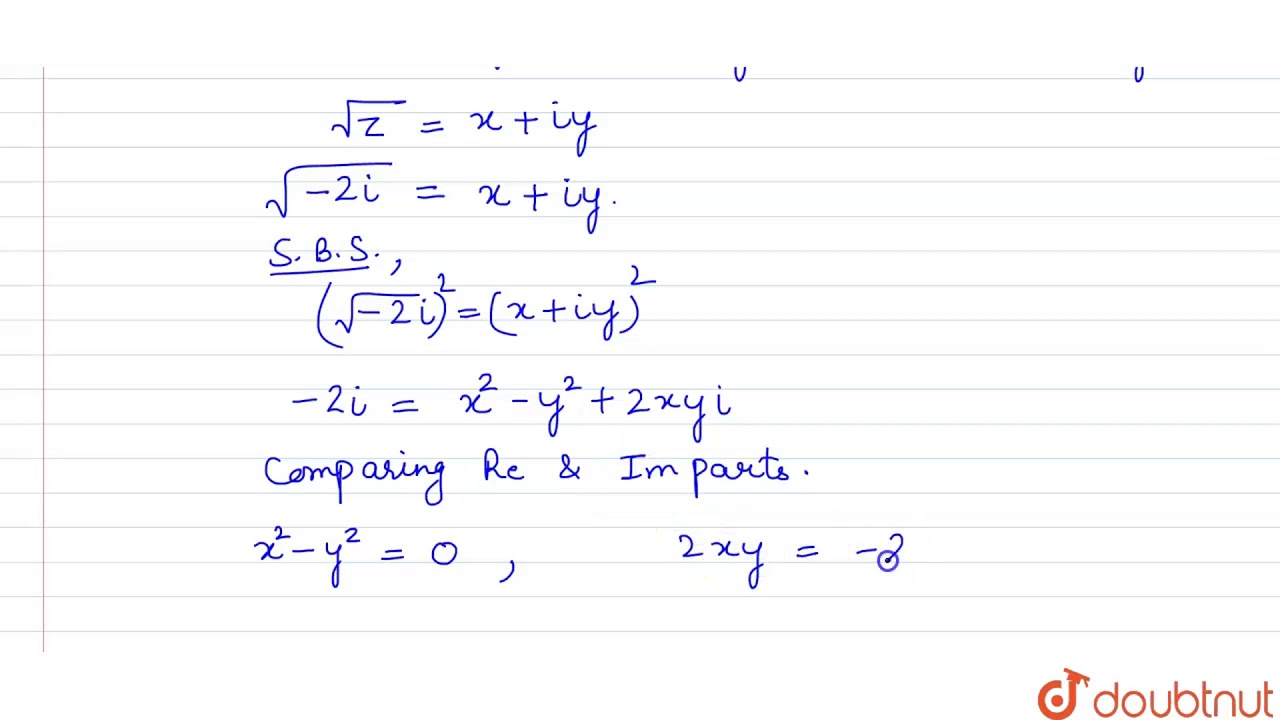 √z = x + iy
√-2i = x + iy.
S.B.S.,
(√-2i)² = (x + iy)²
-2i = x² - y² + 2xyi
Comparing Re & Im parts.
x² - y² = 0 , 2xy = -2
doubtnut